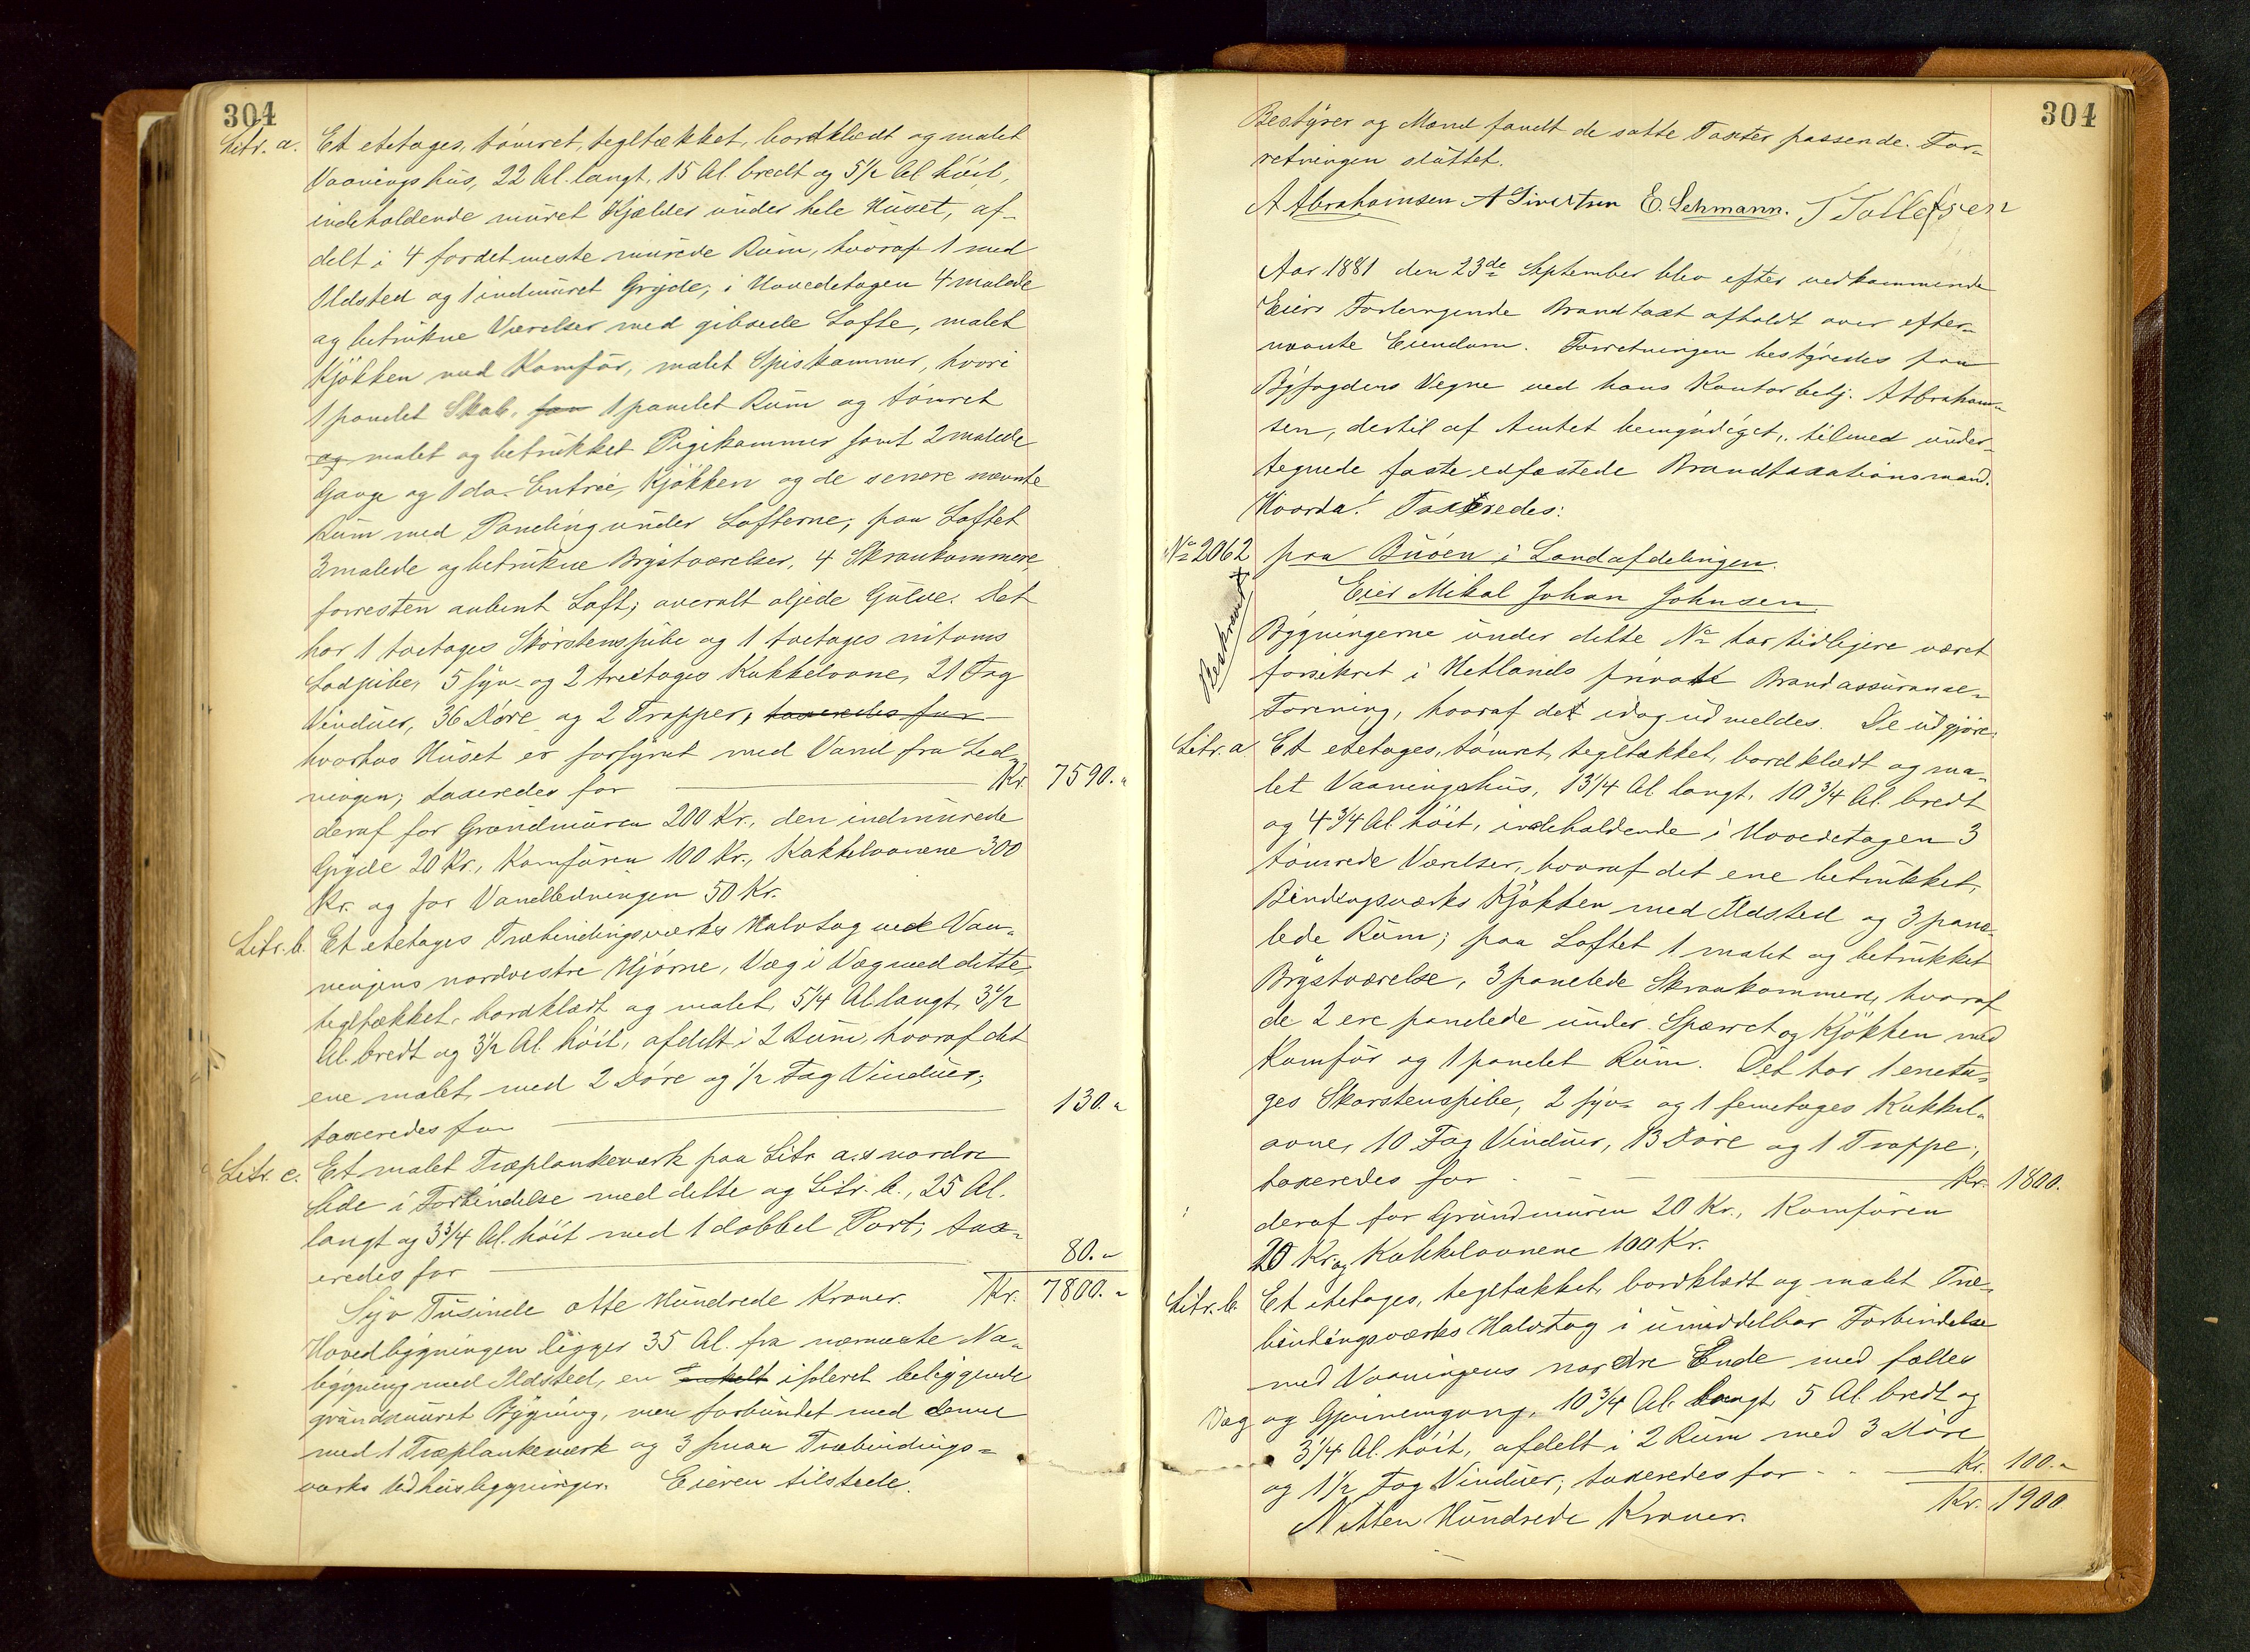 304
Litr. a. Et etetages, tömret, tegltækket, bordklædt og malet
Vaaningshus, 22 Al. langt, 15 Al. bredt og 5 1/2 Al. höit,
indeholdende muret Kjælder under hele Huset, af-
delt i 4 fordetmeste murede Rum, hvoraf 1 med
Ildsted og 1 indmuret Gryde; i Hovedetagen 4 malede
og betrukne Værelser med gibsede Lofte, malet
Kjökken med Komfür, malet Spiskammer, hvori
1 panelet Skab, for 1 panelet Rum og tömret
og malet og betrukket Pigekammer samt 2 malede
Gange og 1 do. Entrée, Kjökken og de senere nævnte
Rum med Paneling under Lofterne; paa Loftet
3 malede og betrukne Brystværelser, 4 Skraakammere
forresten aabent Loft; overalt oljede Gulve. Det
har 1 toetages Skorstenspibe og 1 toetages
Lodpibe, 5 syv- og 2 treetages Kakkelovne, 21 Fag
Vinduer, 36 Döre og 2 Trapper, taxeredes for
hvorhos Huset er forsynt med Vand fra Led-
ningen; taxeredes for Kr. 7590.-
deraf for Grundmuren 200 Kr., den indmurede
Gryde 20 Kr., Komfüren 100 Kr., Kakkelovnene 300
Kr. og for Vandledningen 50 Kr.
Litr. b. Et etetages Træbindingsværks Halvtag ved Vaa-
ningens nordvestre Hjörne, Væg i Væg med dette,
tegltækket, bordklædt og malet, 5 1/4 Al. langt, 3 1/2
Al. bredt og 3 1/2 Al. höit, afdelt i 2 Rum, hvoraf det
ene malet, med 2 Döre og 1/2 Fag Vinduer;
taxeredes for 130.-
Litr. c. Et malet Træplankeværk paa Litr. a.s nordre
Side i Forbindelse med dette og Litr. b., 25 Al.
langt og 3 3/4 Al. höit med 1 dobbel Port; tax-
eredes for 80.-
Syv Tusinde otte Hundrede Kroner. Kr. 7800.-
Hovedbygningen ligger 35 Al. fra nærmeste Na-
bygning med Ildsted, en enkelt isoleret beliggende
grundmuret Bygning, men forbundet med denne
med 1 Træplankeværk og 3 smaa Træbindings-
værks Udhusbygninger. Eieren tilstede.
304
Bestyrer og Mænd fandt de satte Taxter passende. For-
retningen sluttet.
A Abrahamsen A Sivertsen E. Lehmann. T Tollefsen
Aar 1881 den 23de September blev efter vedkommende
Eiers Forlangende Brandtaxt afholdt over efter-
nævnte Eiendom. Forretningen bestyredes paa
Byfogdens Vegne ved hans Kontorbetj. A Abraham-
sen, dertil af Amtet bemyndiget, tilmed under-
tegnede faste edfæstede Brandtaxationsmænd.
Hvorda! Taxeredes:
No 2062 paa Buöen i Landafdelingen.
Eier Mikal Johan Johnsen.
Beskrevet
Bygningerne under dette No har tidligere været
forsikret i Hetlands private Brandassurance-
Forening, hvoraf det idag udmeldes. De udgjöre:
Litr. a Et etetages, tömret, tegltækket, bordklædt og ma-
let Vaaningshus, 13 1/4 Al. langt, 10 3/4 Al. bredt
og 4 3/4 Al. höit, indeholdende i Hovedetagen 3
tömrede Værelser, hvoraf det ene betrukket,
Bindingsværks Kjökken med Ildsted og 3 pane-
lede Rum; paa Loftet 1 malet og betrukket
Brystværelse, 3 panelede Skraakammere, hvoraf
de 2 ere panelede under Spærret og Kjökken med
Komfür og 1 panelet Rum. Det har 1 eneta-
ges Skorstenspibe, 2 syv- og 1 femetages Kakkel-
ovne, 10 Fag Vinduer, 13 Döre og 1 Trappe;
taxeredes for Kr. 1800.
deraf for Grundmuren 20 Kr., Komfüren
20 Kr. og Kakkelovnene 100 Kr.
Litr. b. Et etetages, tegltækket, bordklædt og malet Træ-
bindingsværks Halvtag i umiddelbar Forbindelse
med Vaaningens nordre Ende med fælles
Væg og Gjennemgang, 10 3/4 Al. langt, 5 Al. bredt og
3 1/4 Al. höit, afdelt i 2 Rum med 3 Döre
og 1 1/2 Fag Vinduer; taxeredes for Kr. 100.-
Nitten Hundrede Kroner. Kr. 1900